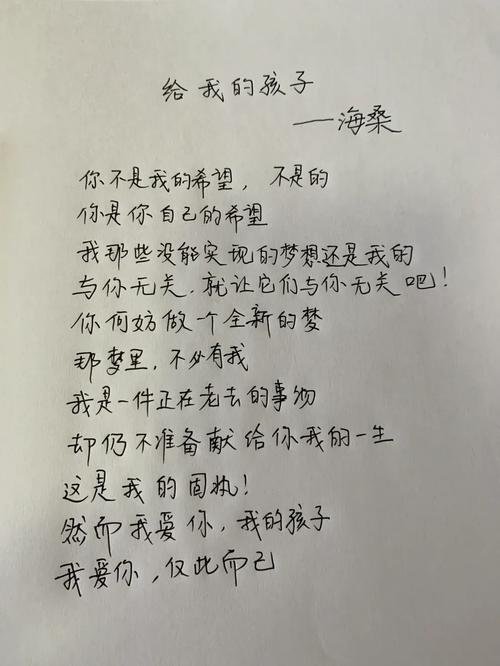 给我的孩子
——海桑
你不是我的希望，不是的
你是你自己的希望
我那些没能实现的梦想还是我的
与你无关，就让它们与你无关吧！
你何妨做一个全新的梦
那梦里，不必有我
我是一件正在老去的事物
却仍不准备献给你我的一生
这是我的固执！
然而我爱你，我的孩子
我爱你，仅此而已